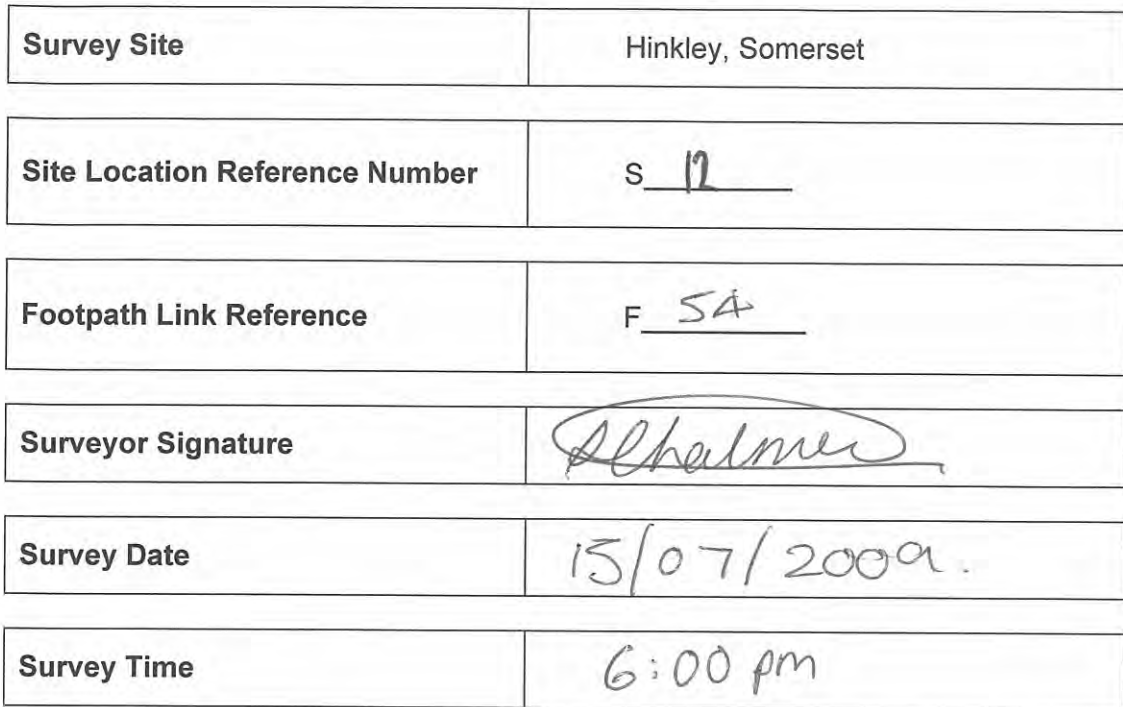 Survey Site Hinkley, Somerset
Site Location Reference Number S 12
Footpath Link Reference F 54
Surveyor Signature
Survey Date 15/07/2009.
Survey Time 6:00 pm